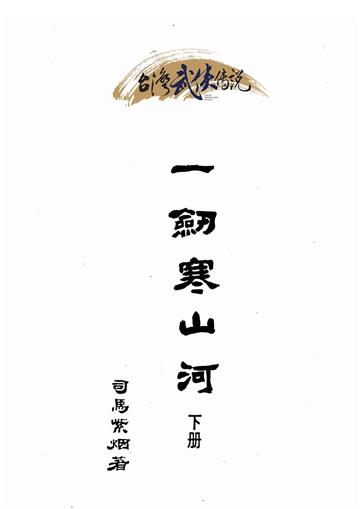 台湾武侠传说
一劒寒山河
下册
司馬紫烟著